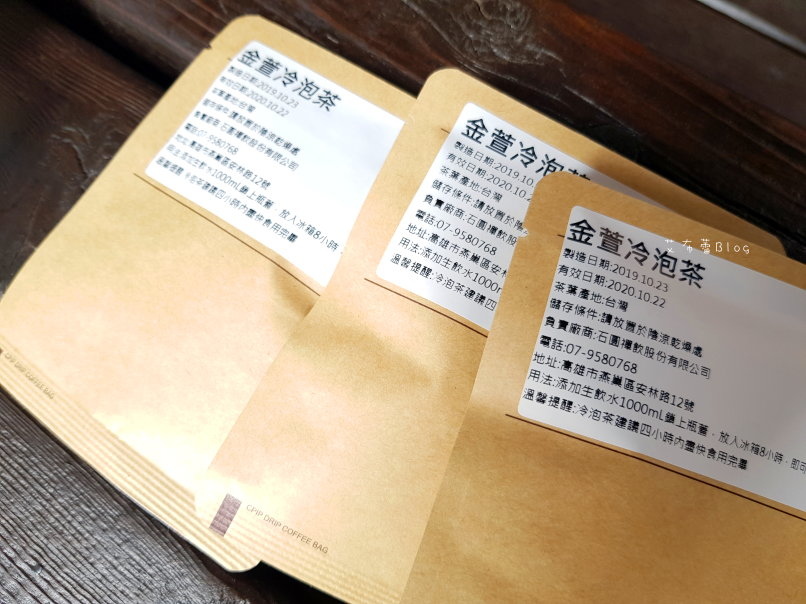 金萱冷泡茶
製造日期:2019.10.23
有效日期:2020.10.22
茶葉產地:台灣
儲存條件:請放置於陰涼乾燥處
負責廠商:石圓禪飲股份有限公司
電話:07-9580768
地址:高雄市燕巢區安林路12號
用法:添加生飲水1000mL鎖上瓶蓋，放入冰箱8小時
溫馨提醒:冷泡茶建議四小時內盡快食用完畢
CPIP DRIP COFFEE BAG
金萱冷泡茶
製造日期:2019.10
有效日期:2020.10.2
茶葉產地:台灣
儲存條件:請放置於陰
負責廠商:石圓禪飲股
電話:07-9580768
地址:高雄市燕巢區安林
用法:添加生飲水1000m
溫馨提醒:冷泡茶建議四
CPIP DRIP COFFEE BAG
金萱冷泡茶
製造日期:2019.10.23
有效日期:2020.10.22
茶葉產地:台灣
儲存條件:請放置於陰涼乾燥處
負責廠商:石圓禪飲股份有限公司
電話:07-9580768
地址:高雄市燕巢區安林路12號
用法:添加生飲水1000mL鎖上瓶蓋，放入冰箱8小時，即可
溫馨提醒:冷泡茶建議四小時內盡快食用完畢
艾布蕾Blog